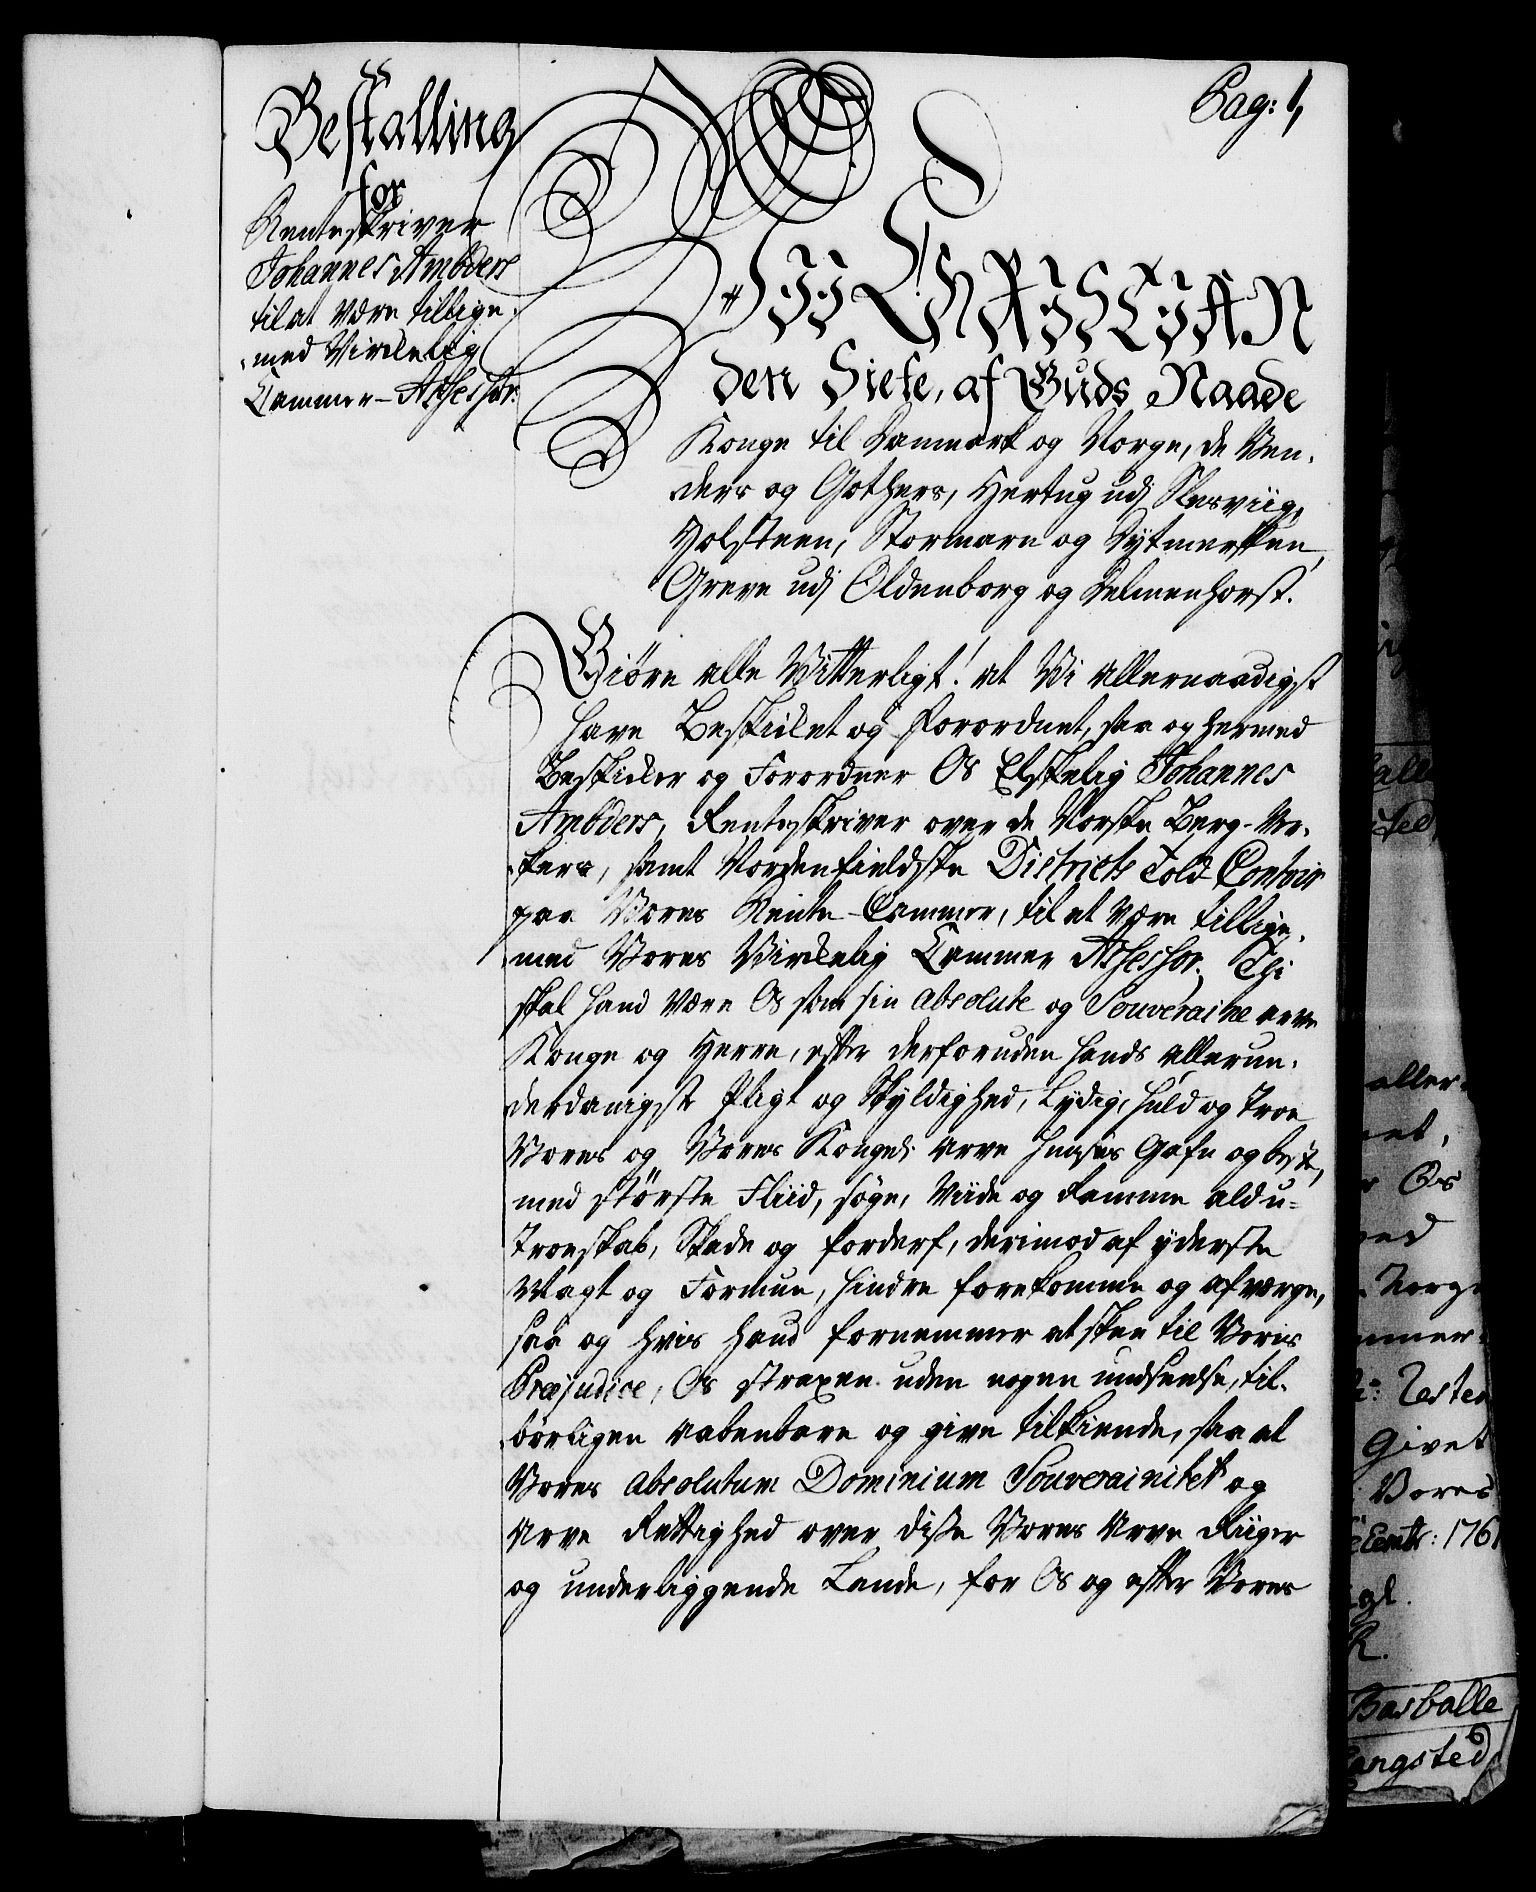 Pag: 1,
Bestalling
for
Renteskriver
Johannes Ambders
til at være tillige
med Virckelig
Cammer-Assessor.
Wii CHRISTIAN
den Siette, af Guds Naade
Konge til Danmark og Norge, de Ven-
ders og Gothers, Hertug udj Slesviig,
Holsteen, Stormarn og Dytmersken,
Greve udj Oldenborg og Delmenhorst.
Giöre alle Witterligt! at Wi allernaadigst
have Beskicket og Forordnet, saa og hermed
Beskicker og Forordner Os Elskelig Johannes
Ambders, Renteskriver over de Norske Berg-Ver-
kers, samt Nordenfieldske Districts Told Contoir
paa Vores Rente-Cammer, til at være tillige-
med Vores Virckelig Cammer Assessor. Thi
skal hand være Os som sin absolute og Souveraine arve
Konge og Herre, efter derforuden hands allerun-
derdanigst Pligt og Skyldighed, Lydig, huld og troe
Vores og Vores Kongel: arve Huuses Gafn og beste,
med största Fliid, söge, Viide og Ramme ald u-
troeskab, Skade og forderf, derimod af yderste
Magt og Formue, hindre forekomme og afværge,
saa og hvis hand fornemmer at skee til Voris
Præjudice, Os straxen uden nogen undseelse, til-
börligen aabenbare og give tilkiende, saa at
Vores absolutum Dominium Souverainitet og
Arve Rettighed over disse Vores Arve Riiger
og underliggende Lande, for Os og efter Vores
aller-
net,
Os
ved
Norge
mmer-
Givet
Vores
1761
Basballe
Langsted